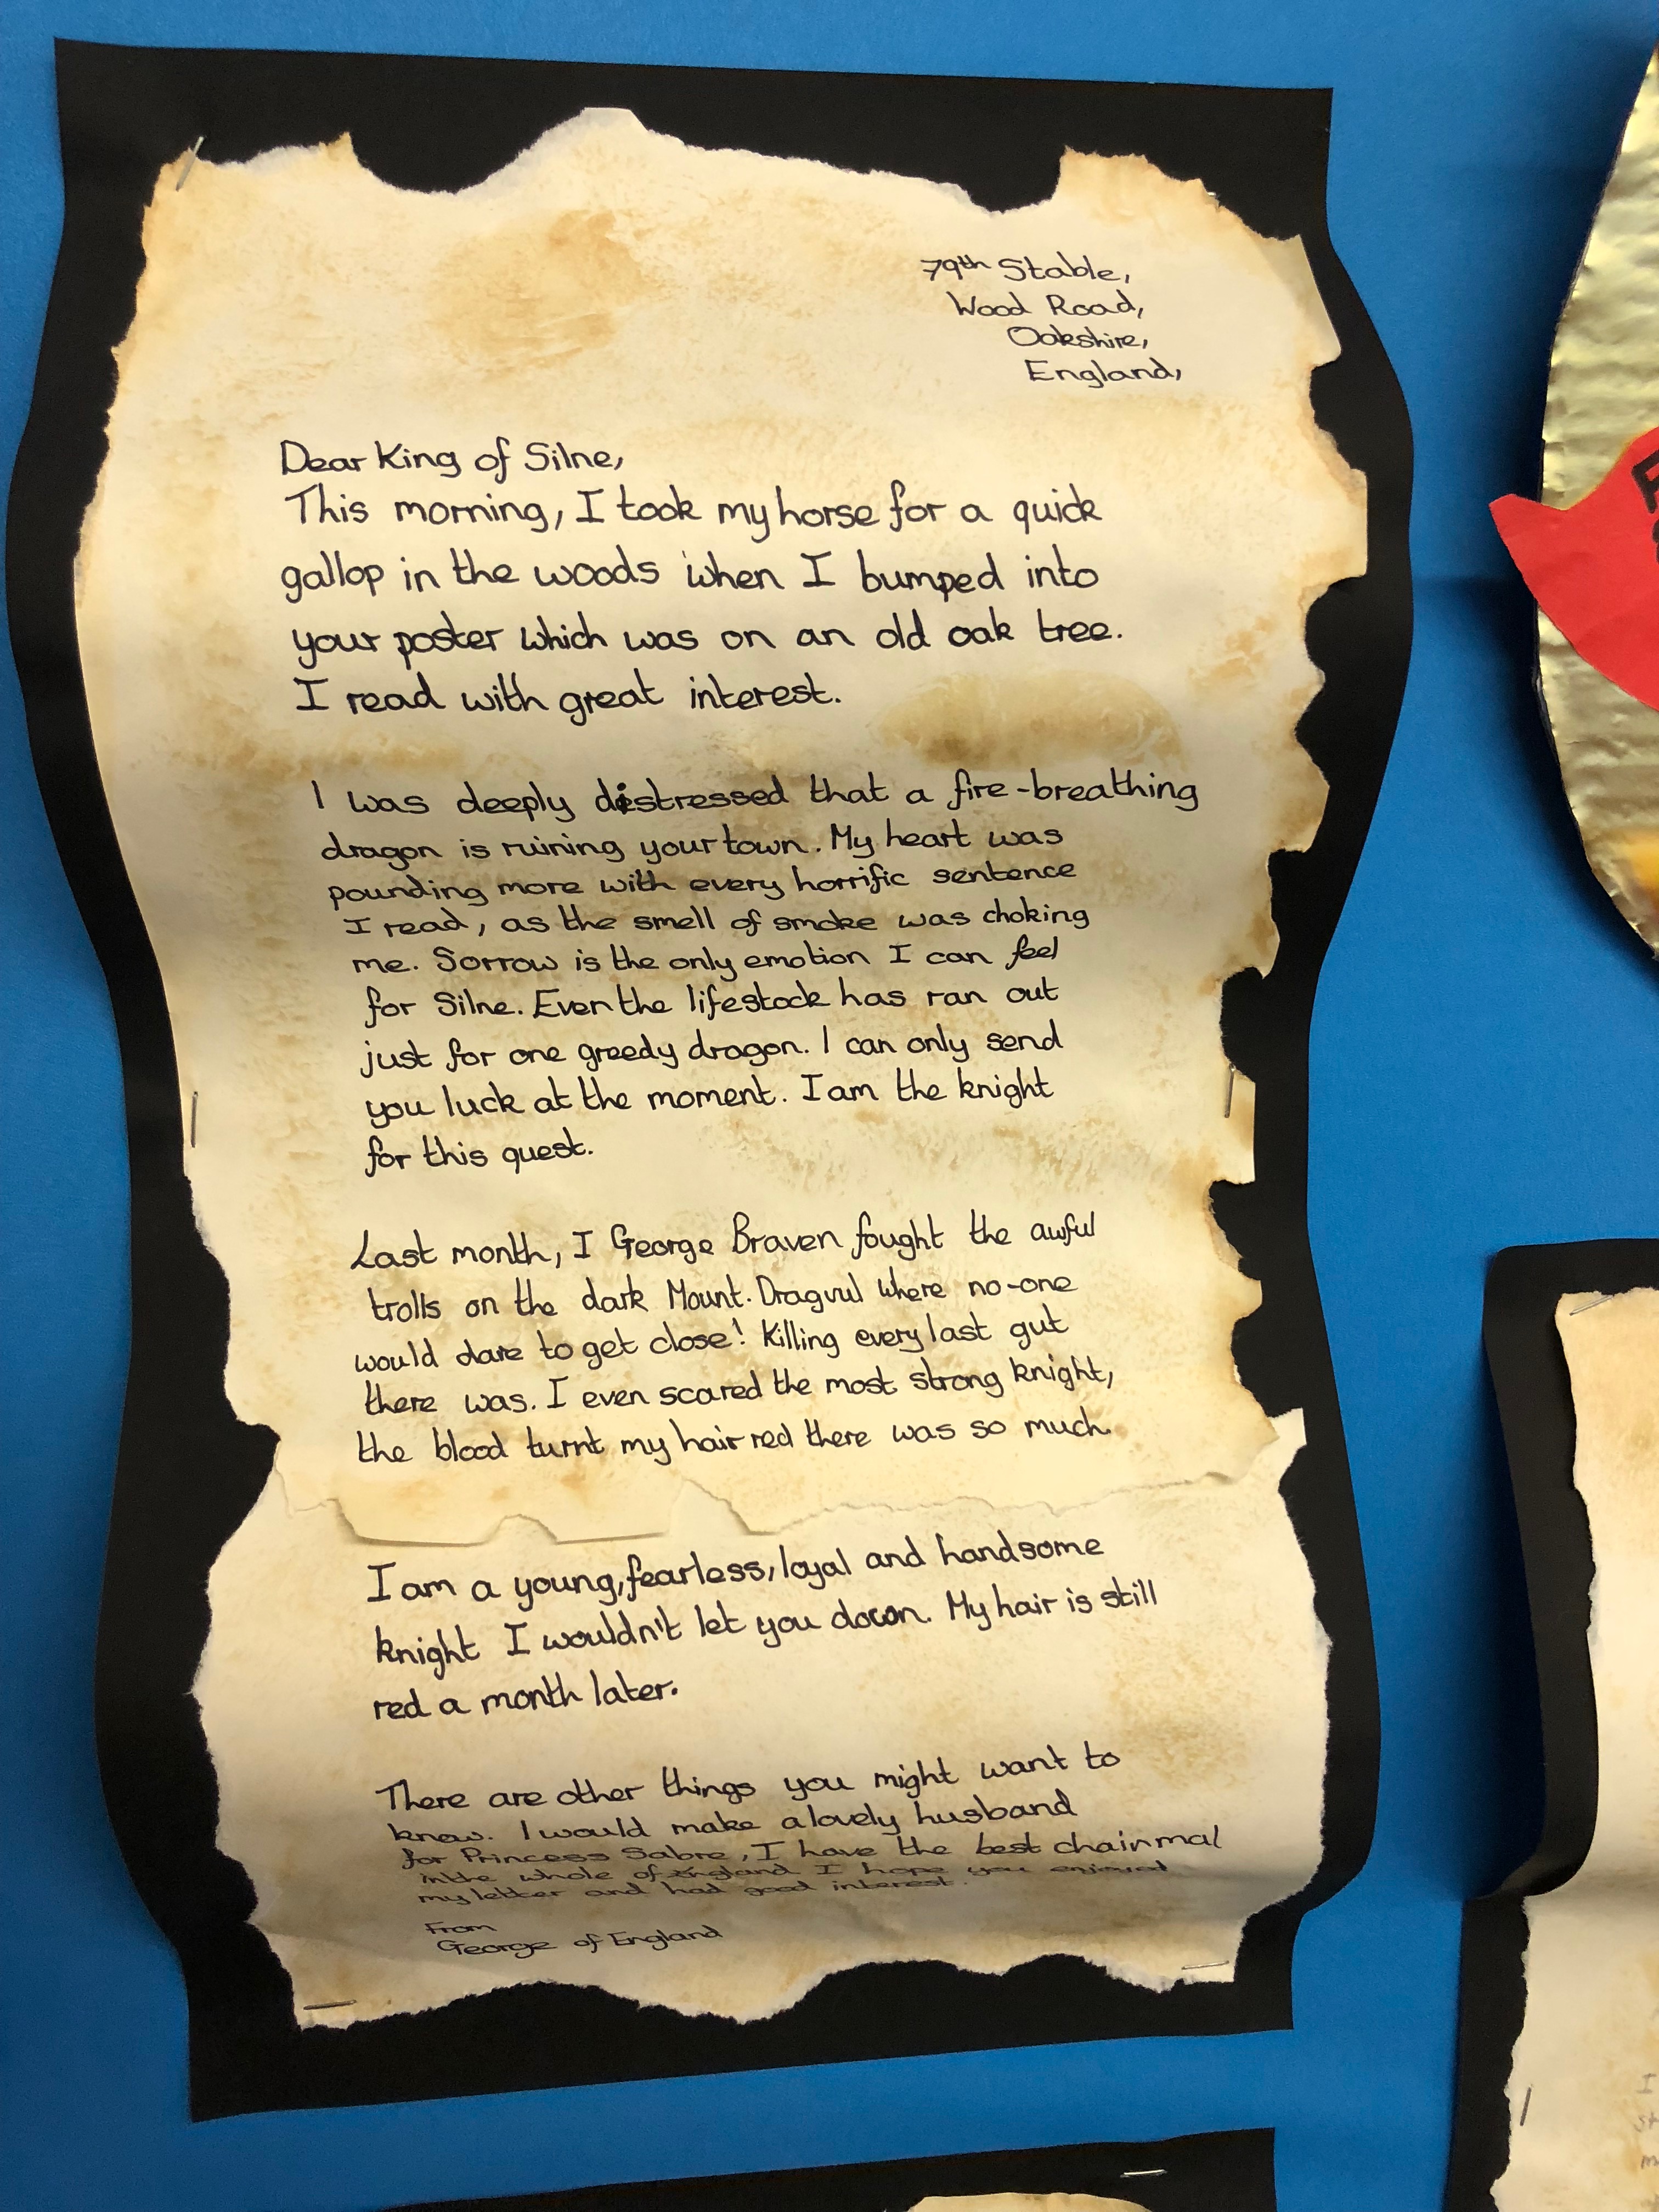 79th Stable,
Wood Road,
Oakshire,
England,
Dear King of Silne,
This morning, I took my horse for a quick
gallop in the woods when I bumped into
your poster which was on an old oak tree.
I read with great interest.
I was deeply distressed that a fire-breathing
dragon is ruining your town. My heart was
pounding more with every horrific sentence
I read, as the smell of smoke was choking
me. Sorrow is the only emotion I can feel
for Silne. Even the lifestock has ran out
just for one greedy dragon. I can only send
you luck at the moment. I am the knight
for this quest.
Last month, I George Braven fought the awful
trolls on the dark Mount. Dragvul where no-one
would dare to get close! Killing every last gut
there was. I even scared the most strong knight,
the blood turnt my hair red there was so much.
I am a young, fearless, loyal and handsome
knight I wouldn't let you down. My hair is still
red a month later.
There are other things you might want to
know. I would make a lovely husband
for Princess Sabre, I have the best chainmal
in the whole of England I hope you enjoyed
my letter and had good interest.
From
George of England